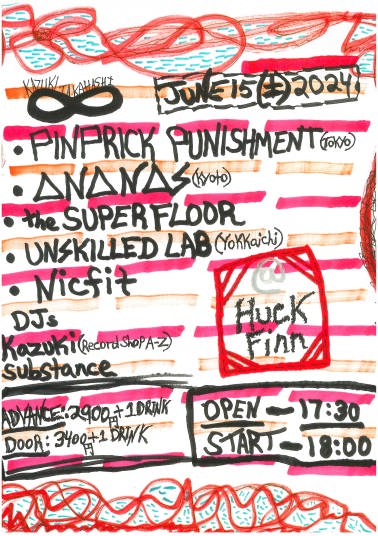 KAZUKI TAKAHASHI
JUNE 15(土)2024
• PINPRICK PUNISHMENT(TOKYO)
• ANANAS(KYOTO)
• the SUPERFLOOR
• UNSKILLED LAB(YOKKAICHI)
• Nicfit
@
HUCK
Finn
DJs
Kazuki(Record Shop A-Z)
Substance
ADVANCE:2900円+1DRINK
DOOR:3400円+1DRINK
OPEN — 17:30
START — 18:00